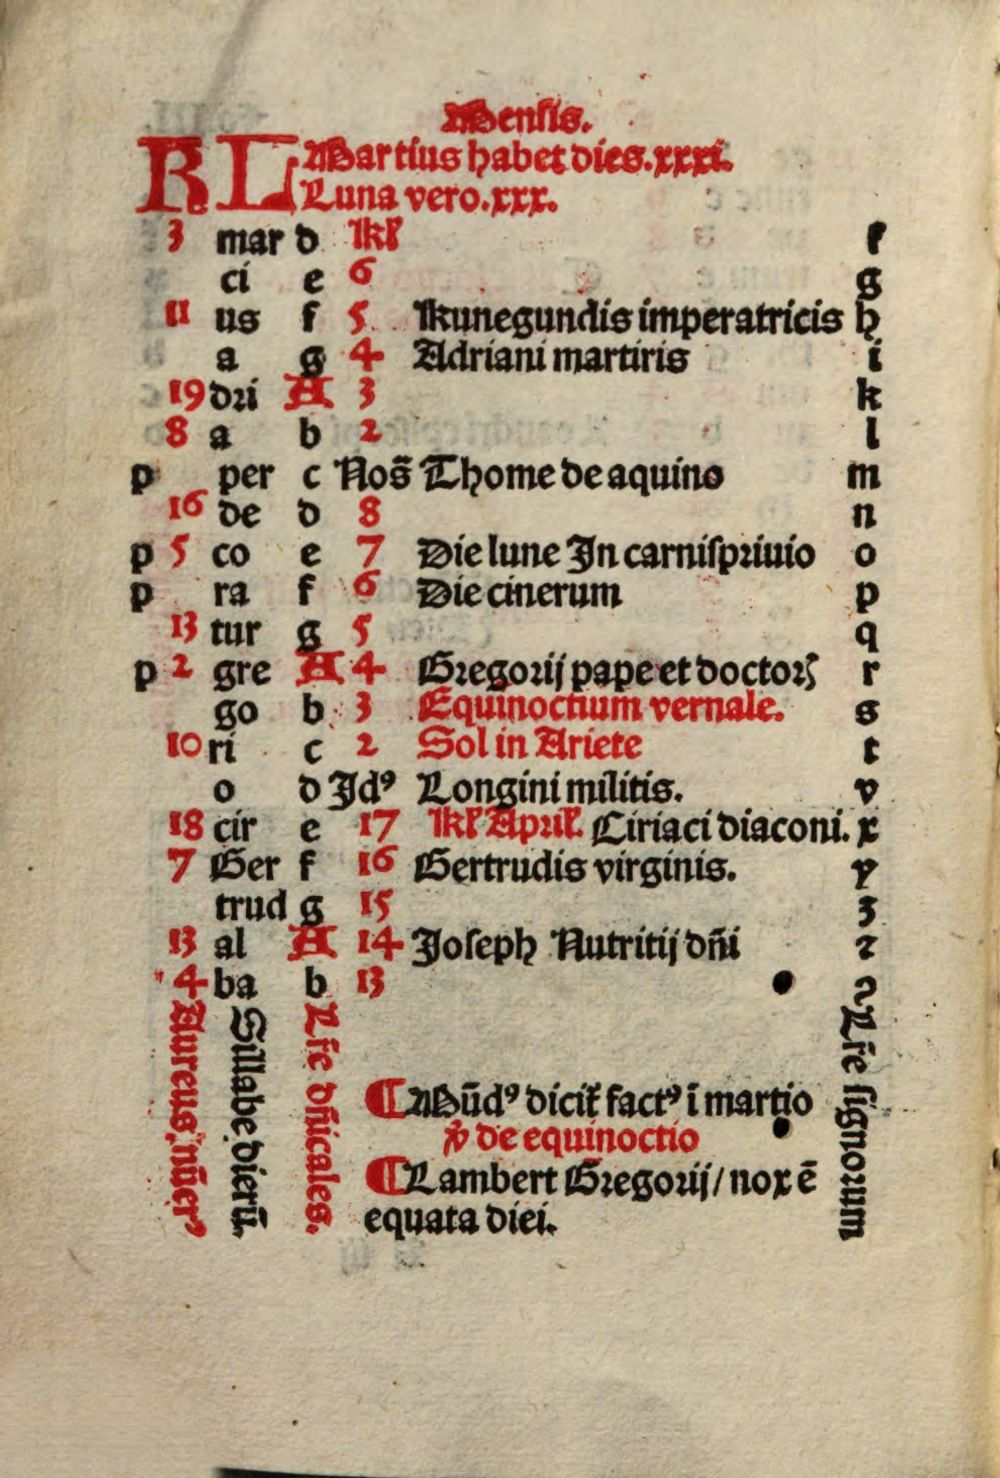 Mensis.
KL Martius habet dies.xxxi.
Luna vero.xxx.
3 mar d kl̄ f
ci e 6 g
11 us f 5 Kunegundis imperatricis h
a g 4 Adriani martiris i
19 dri A 3 k
8 a b 2 l
p per c Nos̄ Thome de aquino m
16 de d 8 n
p 5 co e 7 Die lune In carnispriuio o
p ra f 6 Die cinerum p
13 tur g 5 q
p 2 gre A 4 Gregorij pape et doctorꝭ r
go b 3 Equinoctium vernale. s
10 ri c 2 Sol in Ariete t
o d Idꝰ Longini militis. v
18 cir e 17 kl̄ April̄. Ciriaci diaconi. x
7 Ger f 16 Gertrudis virginis. y
trud g 15 z
13 al A 14 Joseph Nutritij dn̄i ꝛ
4 ba b 13
Aureus nūerꝰ
Sillabe dierū.
Lr̄e dn̄icales.
Lr̄e signorum
¶ Mūdꝰ dicit̄ factꝰ ī martio
de equinoctio
¶ Lambert Gregorij/nox ē
equata diei.